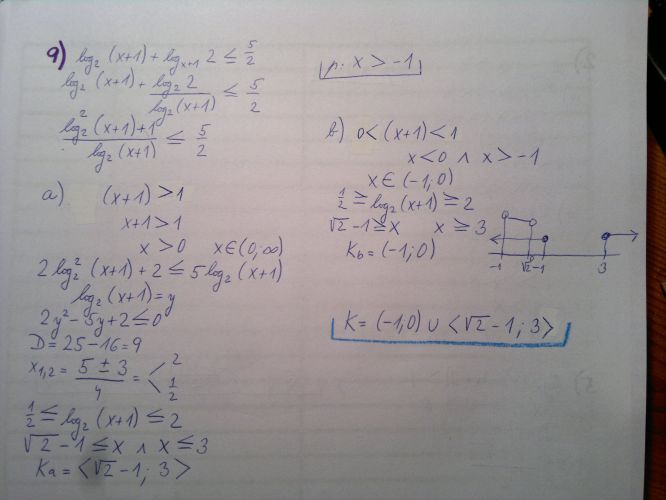 9) log₂ (x+1) + logₓ₊₁ 2 ≤ 5/2
log₂ (x+1) + log₂ 2 / log₂ (x+1) ≤ 5/2
log₂² (x+1) + 1 / log₂ (x+1) ≤ 5/2
a) (x+1) > 1
x+1 > 1
x > 0 x ∈ (0; ∞)
2 log₂² (x+1) + 2 ≤ 5 log₂ (x+1)
log₂ (x+1) = y
2y² - 5y + 2 ≤ 0
D = 25 - 16 = 9
x₁,₂ = 5 ± 3 / 4 = < 2
1/2
1/2 ≤ log₂ (x+1) ≤ 2
√2 - 1 ≤ x ∧ x ≤ 3
Ka = <√2 - 1; 3>
p: x > -1
b) 0 < (x+1) < 1
x < 0 ∧ x > -1
x ∈ (-1; 0)
1/2 ≥ log₂ (x+1) ≥ 2
√2 - 1 ≥ x x ≥ 3
Kb = (-1; 0)
-1 √2 -1 3
K = (-1, 0) ∪ <√2 - 1; 3>